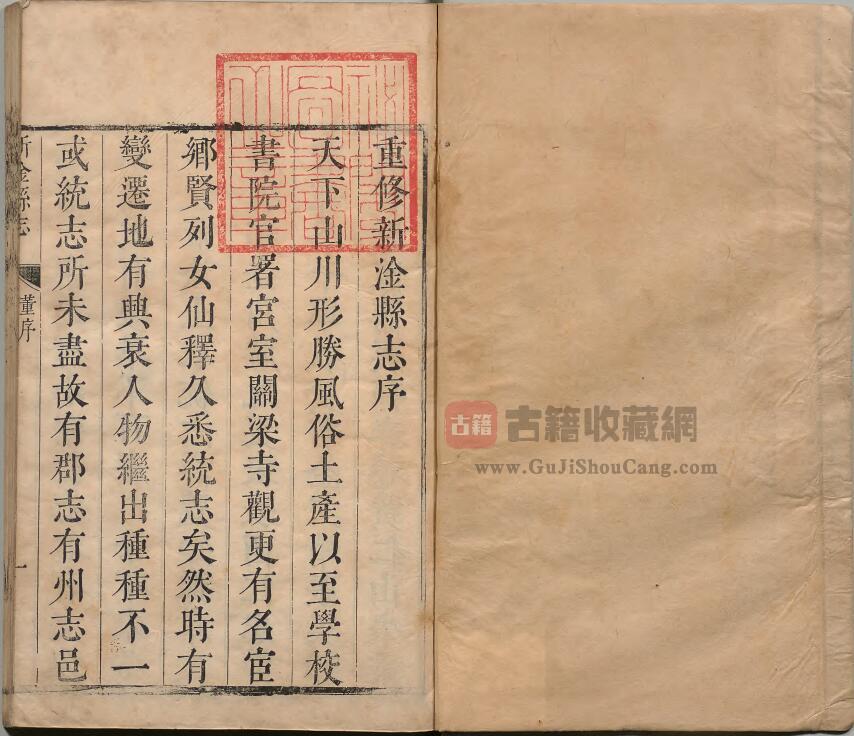 重修新淦縣志序
天下山川形勝風俗土產以至學校
書院官署宮室關梁寺觀更有名宦
鄉賢列女仙釋久悉統志矣然時有
變遷地有興衰人物繼出種種不一
或統志所未盡故有郡志有州志邑
新淦縣志
董序
一
古籍
古籍收藏網
www.GuJiShouCang.com